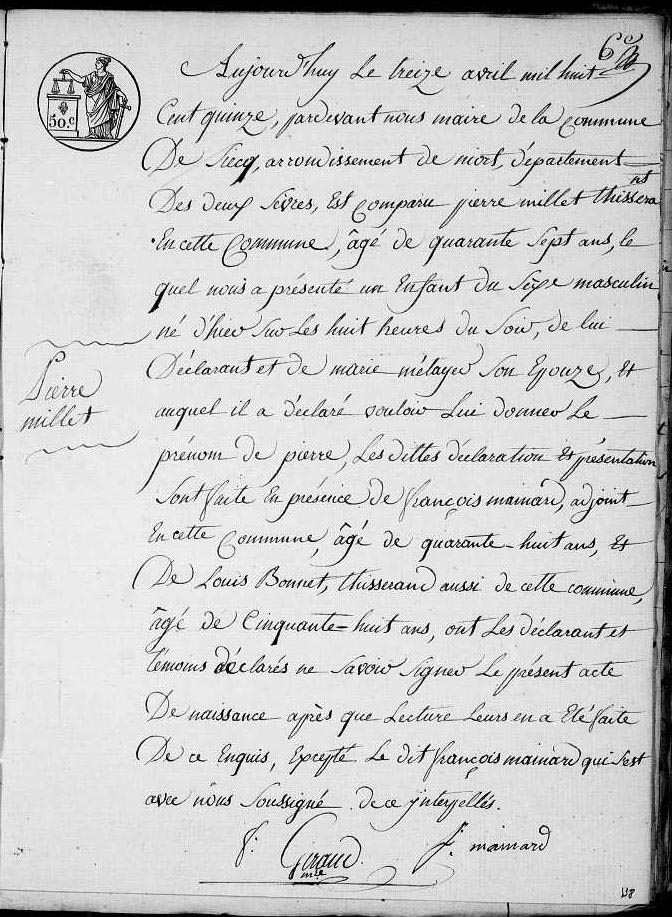 6e
50.c
Aujourd'huy Le treize avril mil huit
Cent quinze, pardevant nous maire de la Commune
De Siecq, arrondissement de niort, département
Des deux Sèvres, Est Comparu pierre millet thisserant
En cette Commune, âgé de quarante Sept ans, le
quel nous a présenté un Enfant du Sexe masculin
né d'hier Sur Les huit heures du Soir, de lui
Déclarant et de marie métayer Son Epouze, Et
auquel il a déclaré vouloir Lui donner Le
Pierre
millet
prénom de pierre, Les dittes déclaration Et présentation
Sont faite En présence de françois mainard, adjoint
En cette Commune, âgé de quarante-huit ans, Et
De Louis Bonnet, thisserand aussi de cette commune,
âgé de Cinquante-huit ans, ont Les déclarant et
témoins déclarés ne Savoir Signer Le présent acte
De naissance après que Lecture Leurs en a Eté faite
De ce Enquis, Excepté Le dit françois mainard qui s'est
avec nous Soussigné de ce ynterpellés.
f. Giraud. f. mainard
mre